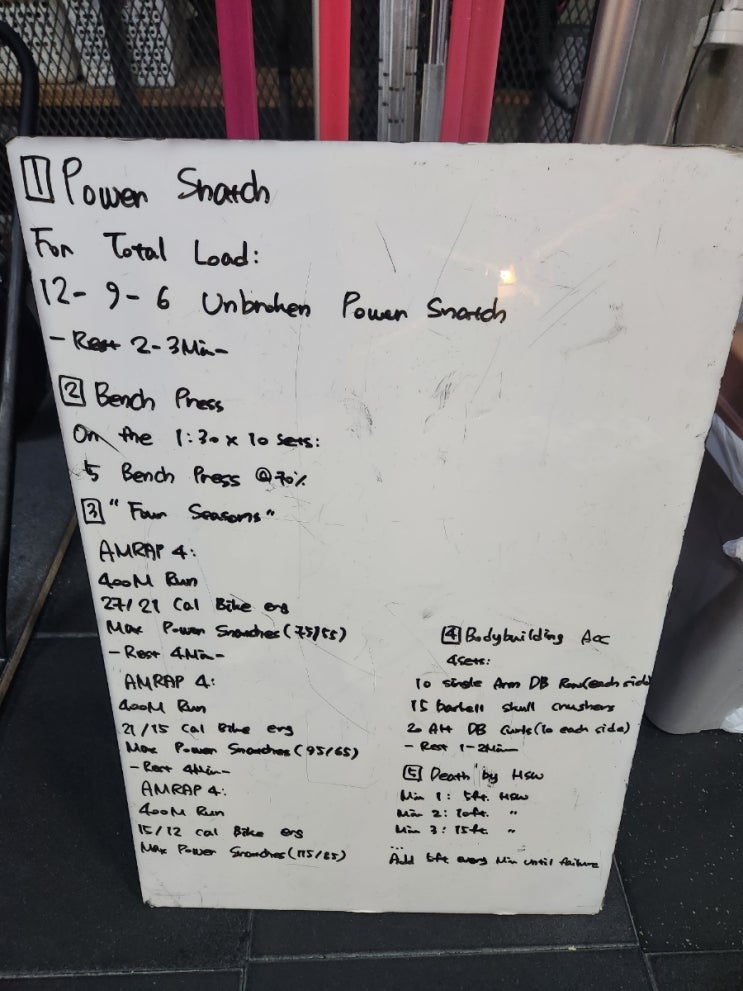 1 Power Snatch
For Total Load:
12-9-6 Unbroken Power Snatch
-Rest 2-3Min-
2 Bench Press
On the 1:30 x 10 sets:
5 Bench Press @70%
3 "Four Seasons"
AMRAP 4:
400M Run
27/21 Cal Bike erg
Max Power Snatches (75/55)
-Rest 4Min-
AMRAP 4:
400M Run
21/15 Cal Bike erg
Max Power Snatches (95/65)
-Rest 4Min-
AMRAP 4:
400M Run
15/12 Cal Bike erg
Max Power Snatches (115/85)
4 Bodybuilding Acc
4sets:
10 single Arm DB Row(each side)
15 barbell skull crushers
20 Alt DB Curls(10 each side)
- Rest 1-2Min
5 Death by HSW
Min 1: 5ft. HSW
Min 2: 10ft. "
Min 3: 15ft. "
...
Add 5ft every Min until failure